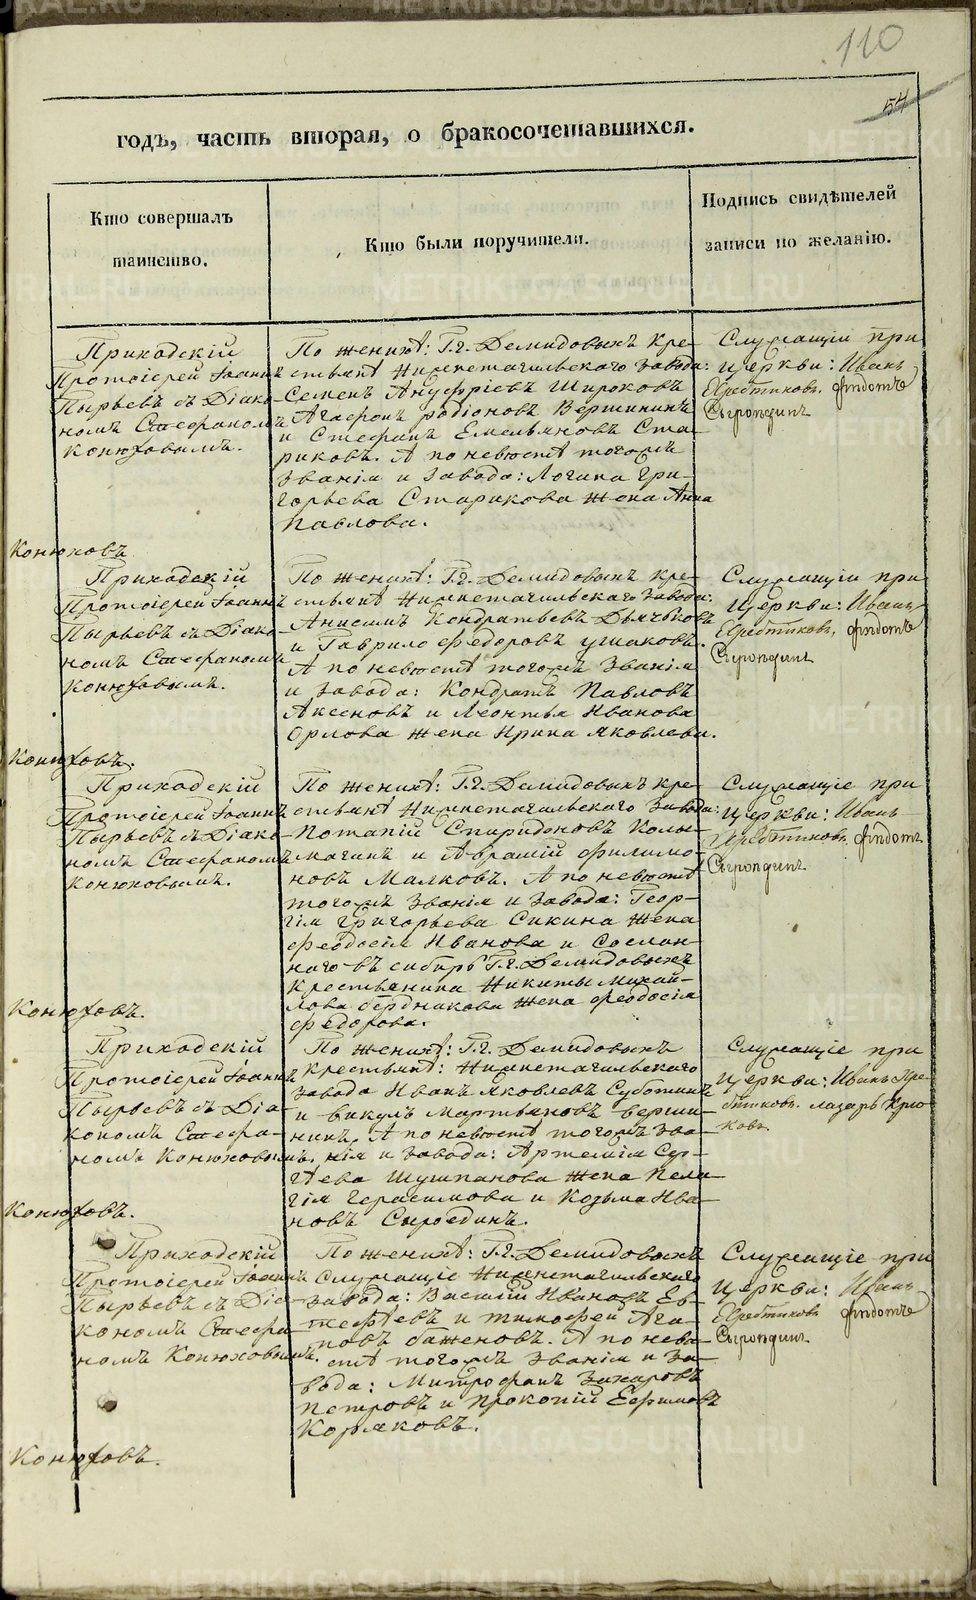 110
54
годъ, часть вторая, о бракосочетавшихся.
Кто совершалъ
таинство.
Кто были поручители.
Подпись свидѣтелей
записи по желанію.
Приходскій
Протоіерей Іоаннъ
Пырьевъ съ Діако-
номъ Стефаномъ
Конюховымъ.
Конюховъ
По женихѣ: Г.г. Демидовыхъ кре-
стьянѣ Нижнетагильскаго завода:
Семенъ Ануфріевъ Широковъ
Агафонъ Родіоновъ Вершининъ
и Стефанъ Емельяновъ Ста-
риковъ. А по невѣстѣ тогожъ
званія и завода: Логина Гри-
горьева Старикова жена Анна
Павлова.
Служащіи при
церкви: Иванъ
Сыропдинъ
Приходскій
Протоіерей Іоаннъ
Пырьевъ съ Діако-
номъ Стефаномъ
Конюховымъ.
Конюховъ.
По женихѣ: Г.г. Демидовыхъ кре-
стьянѣ Нижнетагильскаго завода:
Анисимъ Кондратьевъ Дьячковъ
и Гаврило Федоровъ Ушаковъ.
А по невѣстѣ тогожъ званія
и завода: Кондратъ Павловъ
Аксеновъ и Леонтья Иванова
Орлова жена Ирина Яковлева.
Служащіи при
церкви: Иванъ
Сыропдинъ
Приходскій
Протоіерей Іоаннъ
Пырьевъ съ Діако-
номъ Стефаномъ
Конюховымъ.
Конюховъ.
По женихѣ: Г.г. Демидовыхъ кре-
стьянѣ Нижнетагильскаго завода:
Потапій Спиридоновъ Колы-
магинъ и Аврамій Филимо-
новъ Малковъ. А по невѣстѣ
тогожъ званія и завода: Геор-
гія Григорьева Сикина жена
Феодосія Иванова и Сослан-
наго въ сибирь Г.г. Демидовыхъ
крестьянина Никиты Михай-
лова Бердникова жена Феодосія
Федорова.
Служащіе при
церкви: Иванъ
Сыропдинъ
Приходскій
Протоіерей Іоаннъ
Пырьевъ съ Діа-
кономъ Стефа-
номъ Конюховымъ.
Конюховъ.
По женихѣ: Г.г. Демидовыхъ
крестьянѣ: Нижнетагильскаго
завода Иванъ Яковлевъ Суботинъ
и Викулъ Мартьяновъ Верши-
нинъ. А по невѣстѣ тогожъ зва-
нія и завода: Артемія Сер-
гѣева Шушпанова жена Пела-
гія Герасимова и Козьма Ива-
новъ Сыроединъ.
Служащіе при
церкви: Иванъ Хре-
бтиковъ. Лазарь Крю-
ковъ
Приходскій
Протоіерей Іоаннъ
Пырьевъ съ Діа-
кономъ Стефа-
номъ Конюховымъ.
Конюховъ.
По женихѣ: Г.г. Демидовыхъ
служащіе Нижнетагильскаго
завода: Василій Ивановъ Ев-
стефѣевъ и Тимофей Ага-
повъ Баженовъ. А по невѣ-
стѣ тогожъ званія и за-
вода: Митрофанъ Захаровъ
Петровъ и Прокопій Ефимовъ
Коряковъ.
Служащіе при
церкви: Иванъ
Хребтиковъ
Сыропдинъ
METRIKI.GASO-URAL.RU